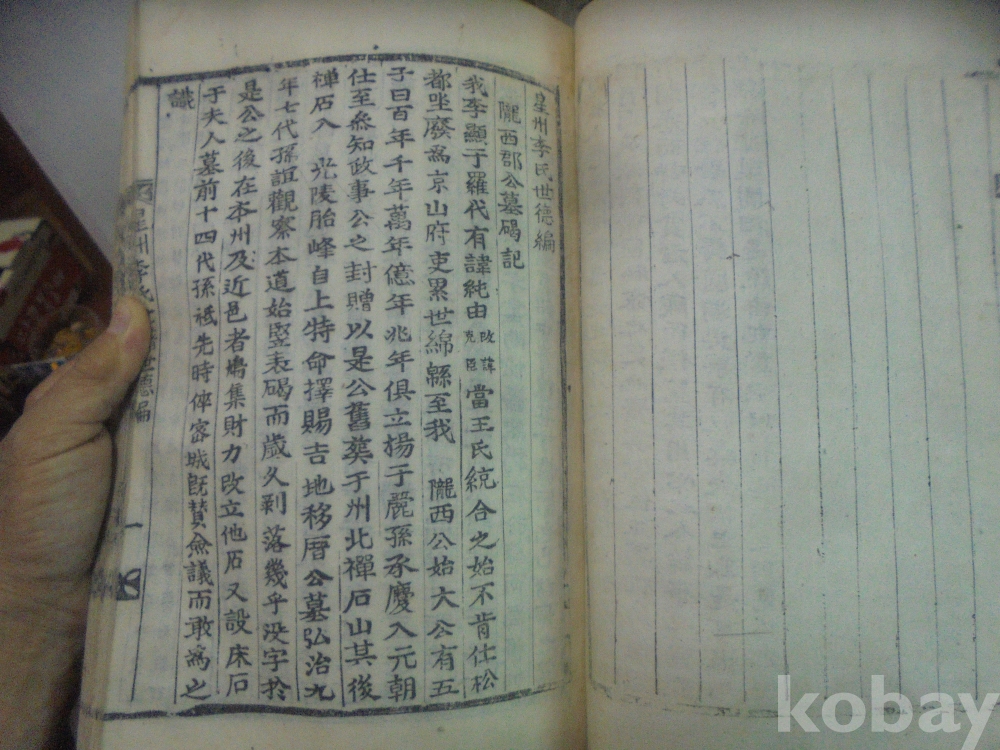 星州李氏世德編
隴西郡公墓碣記
我李顯于羅代有諱純由改諱克臣當王氏統合之始不肯仕松
都坐廢爲京山府吏累世綿緜至我 隴西公始大公有五
子曰百年千年萬年億年兆年俱立揚于麗孫承慶入元朝
仕至叅知政事公之封贈以是公舊葬于州北禪石山其後
禪石入 光陵胎峰自上特命擇賜吉地移厝公墓弘治九
年七代孫誼觀察本道始竪表碣而歲久剥落幾乎没字於
是公之後在本州及近邑者鳩集財力改立他石又設床石
于夫人墓前十四代孫祗先時倅密城旣賛僉議而敢爲之
識
星州李氏世德編
一
kobay